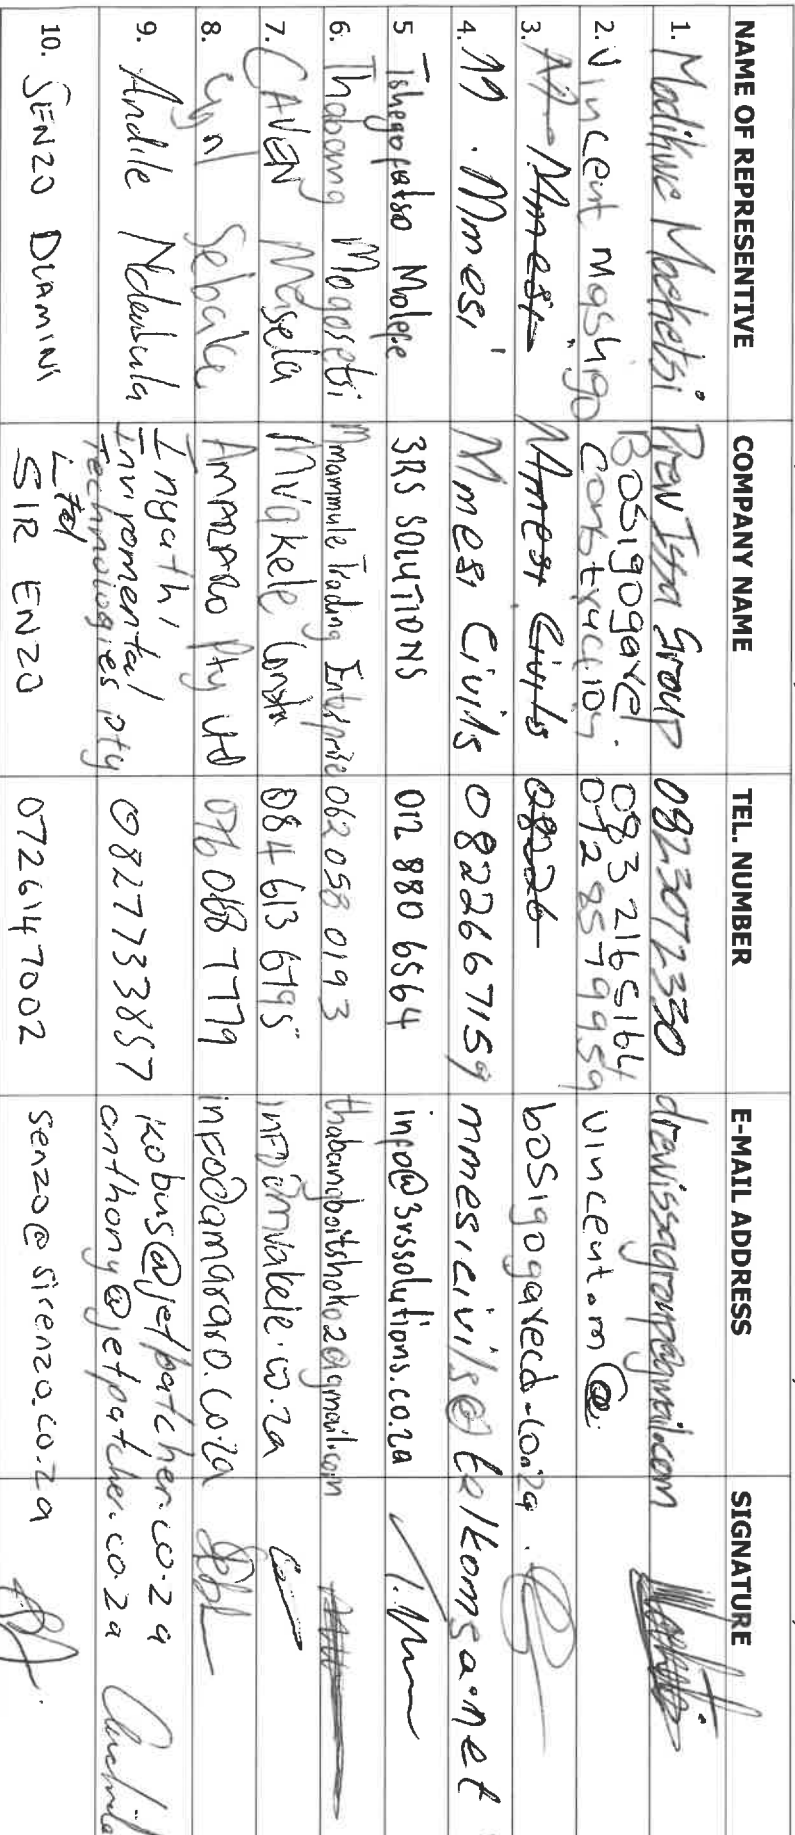 NAME OF REPRESENTIVE COMPANY NAME TEL. NUMBER E-MAIL ADDRESS SIGNATURE
1. Madikwe Mokhetsi Drew Issa Group 0823072330 drewissagroup@gmail.com
2. Vincent Mashigo Bosigogared. Construction 083 2165164 0728579959 vincent.m@
3. M. Mmesi Mmesi Civils 08226 bosigogarecd.co.za.
4. M. Mmesi Mmesi Civils 0822667159 mmesicivils@telkomsa.net
5 Tshegofatso Molepe 3RS SOLUTIONS 012 880 6564 info@3rssolutions.co.za
6. Thabang Mogosetsi Mmammule Trading Enterprise 062 058 0193 thabangboitshoko2@gmail.com
7. CAVEN Masela Mvakele Constr 084 613 6795 info@mvakele.co.za
8. Sebake AMARARO Pty Ltd 076 066 7779 info@amararo.co.za
9. Andile Ndawula Ingathi Enviromental Technologies pty Ltd 0827733857 kobus@jetpatcher.co.za
anthony@jetpatcher.co.za
10. SENZO DLAMINI SIR ENZO 0726147002 senzo@sirenzo.co.za